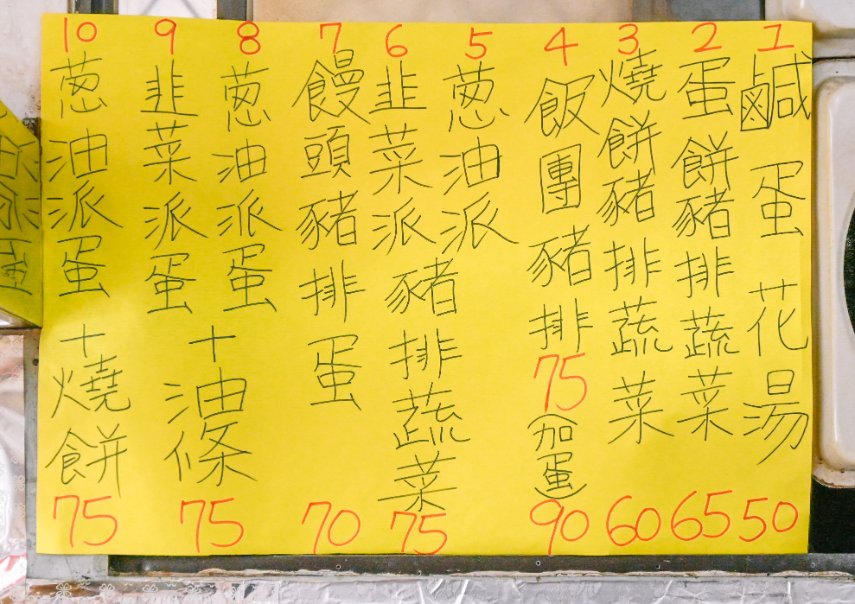 1 鹹蛋花湯 50
2 蛋餅豬排蔬菜 65
3 燒餅豬排蔬菜 60
4 飯團豬排 75 (加蛋) 90
5 葱油派
6 韭菜派
豬排蔬菜 75
7 饅頭豬排蛋 70
8 葱油派蛋
9 韭菜派蛋
+油條 75
10 葱油派蛋+燒餅 75